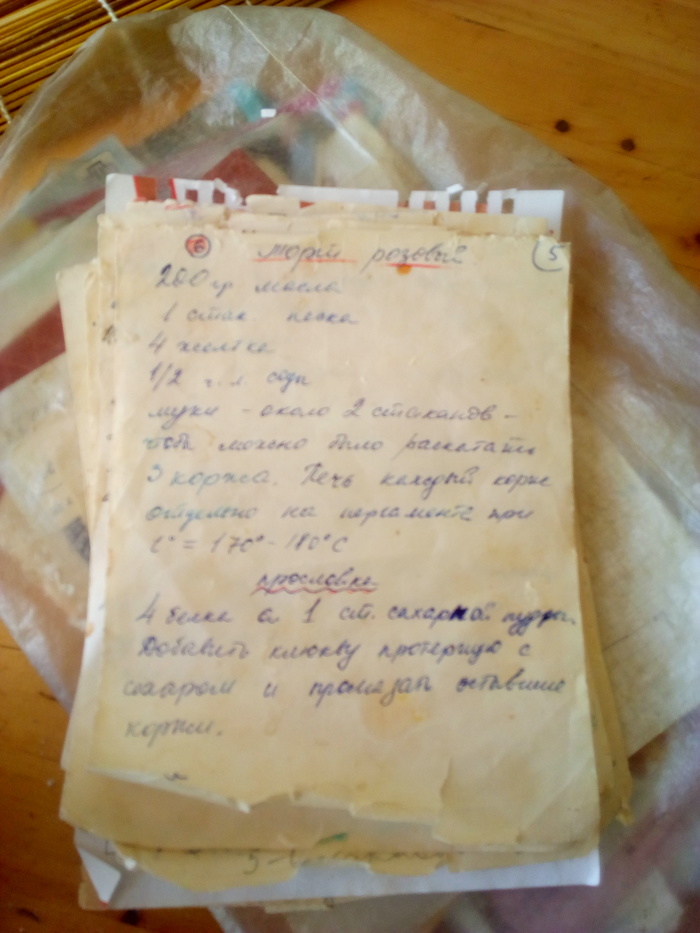 6 Торт розовый 5
200 гр масла
1 стак песка
4 желтка
1/2 ч.л. соды
муки - около 2 стаканов -
чтобы можно было раскатать
3 коржа. Печь каждый корж
отдельно на пергаменте при
t° = 170° - 180°С
прослойка
4 белка и 1 ст. сахарной пудры.
Добавить клюкву протертую с
сахаром и промазать остывшие
коржи.